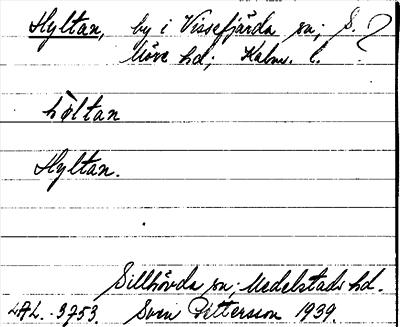 Hyltan, by i Vissefjärda sn; S. ?
Möre hd; Kalm. l.
hỳltan
Hyltan.
Sillhövda sn; Medelstads hd.
LAL. 3753. Sven Pettersson 1939.